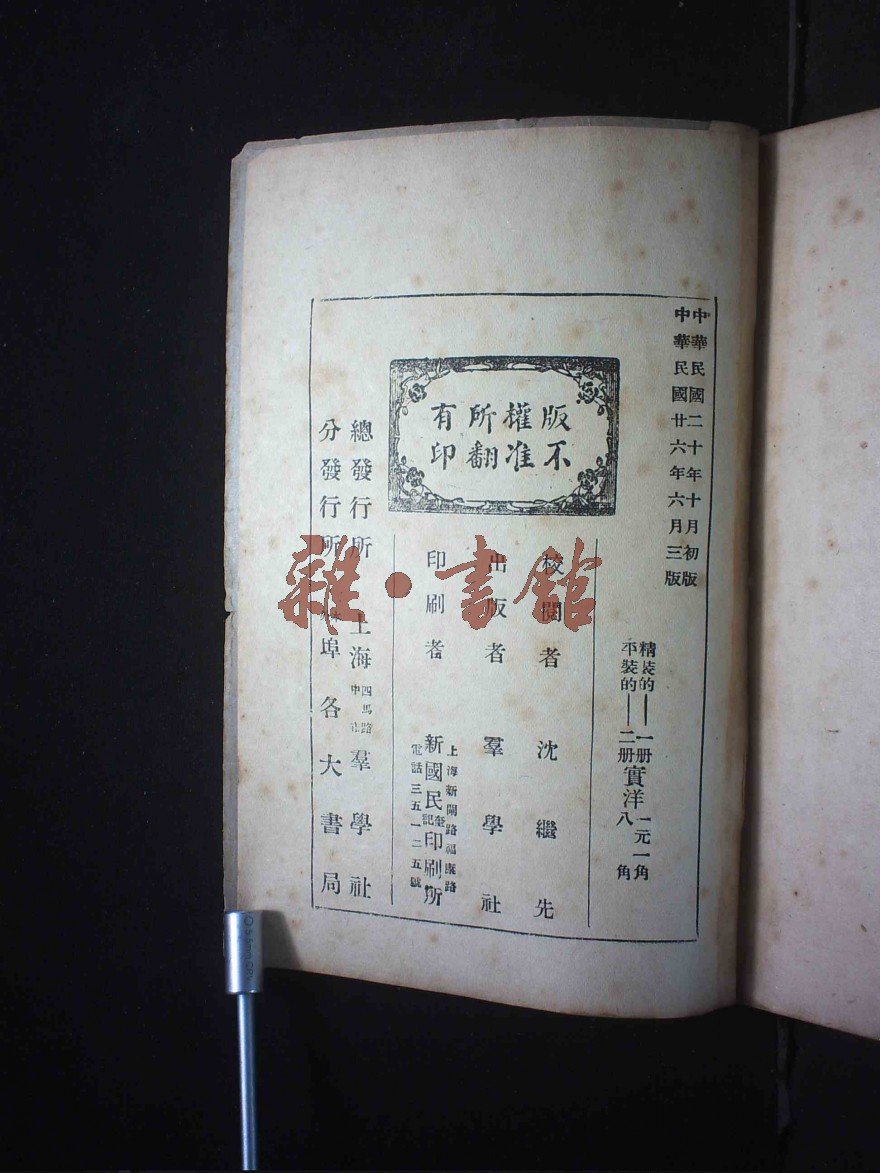 中華民國二十年十月初版
中華民國廿六年六月三版
精裝的——一册實洋一元一角
平裝的——二册實洋八角
版權所有
不准翻印
校閱者 沈繼先
出版者 羣學社
印刷者 新國民奎記印刷所
上海新閘路福康路
電話三五一二五號
總發行所 上海四馬路中市羣學社
分發行所 埠各大書局
雜·書館